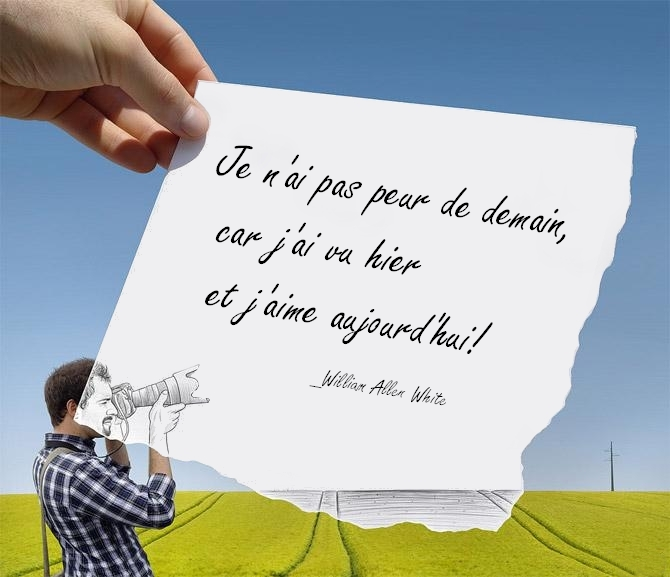 Je n'ai pas peur de demain,
car j'ai vu hier
et j'aime aujourd'hui!
_William Allen White